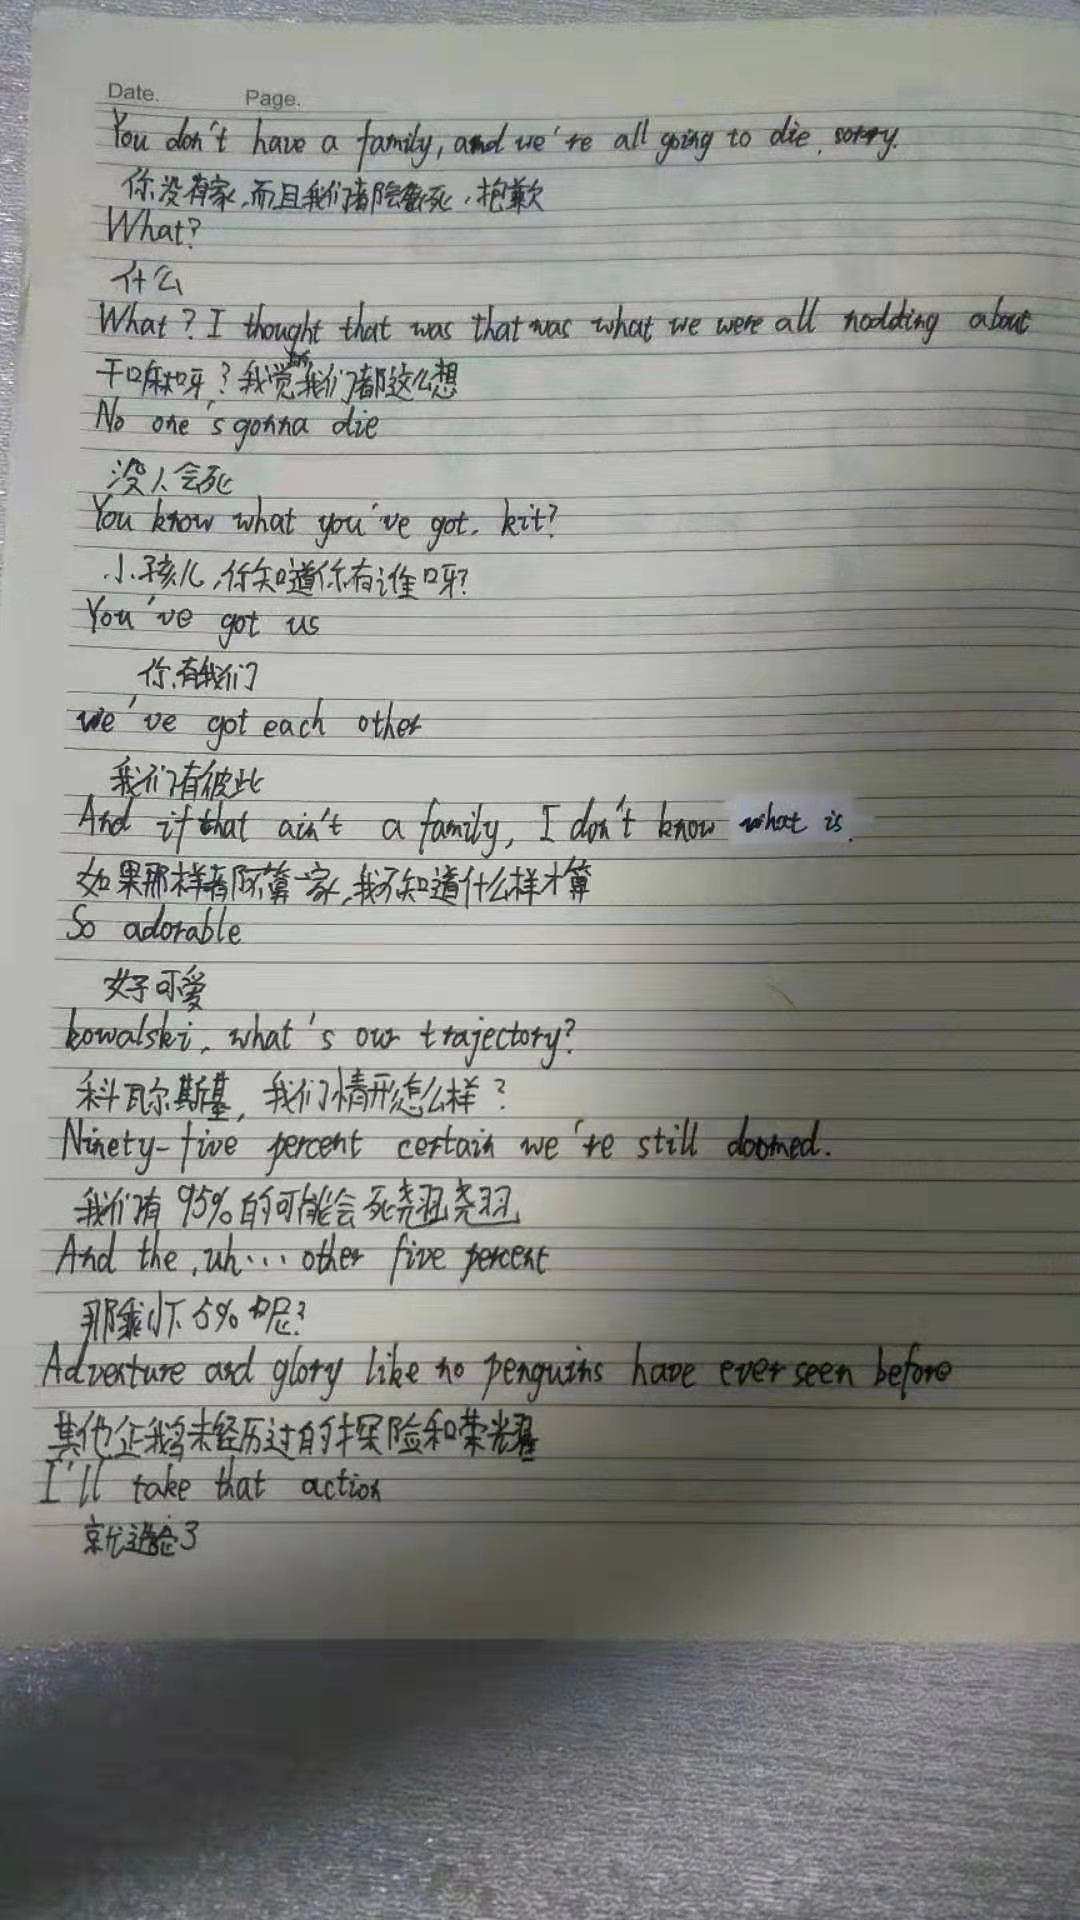 Date. Page.
You don't have a family, and we're all going to die, sorry.
你没有家,而且我们都会死,抱歉
What?
什么
What? I thought that was that was what we were all nodding about
干嘛呀?我觉得我们都这么想
No one's gonna die
没人会死
You know what you've got, kit?
小孩儿,你知道你有谁呀?
You've got us
你有我们
we've got each other
我们有彼此
And if that ain't a family, I don't know what is.
如果那样都不算一家,我不知道什么样才算
So adorable
好可爱
kowalski, what's our trajectory?
科瓦尔斯基,我们情形怎么样?
Ninety-five percent certain we're still doomed.
我们有95%的可能会死翘翘
And the, uh... other five percent
那剩下5%呢?
Adventure and glory like no penguins have ever seen before
其他企鹅未经历过的探险和荣光耀
I'll take that action
就这